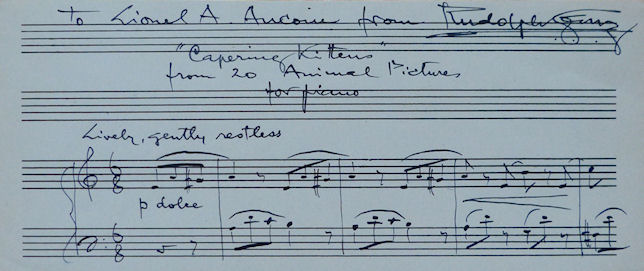 To Lionel A. Aucoin from Rudolph Ganz
"Capering Kittens"
from 20 Animal Pictures
for piano
Lively, gently restless
6 8
p dolce
6 8